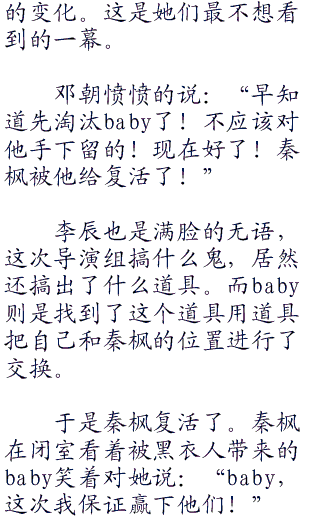 的变化。这是她们最不想看
到的一幕。
邓朝愤愤的说：“早知
道先淘汰baby了！不应该对
他手下留的！现在好了！秦
枫被他给复活了！”
李辰也是满脸的无语，
这次导演组搞什么鬼，居然
还搞出了什么道具。而baby
则是找到了这个道具用道具
把自己和秦枫的位置进行了
交换。
于是秦枫复活了。秦枫
在闭室看着被黑衣人带来的
baby笑着对她说：“baby，
这次我保证赢下他们！”